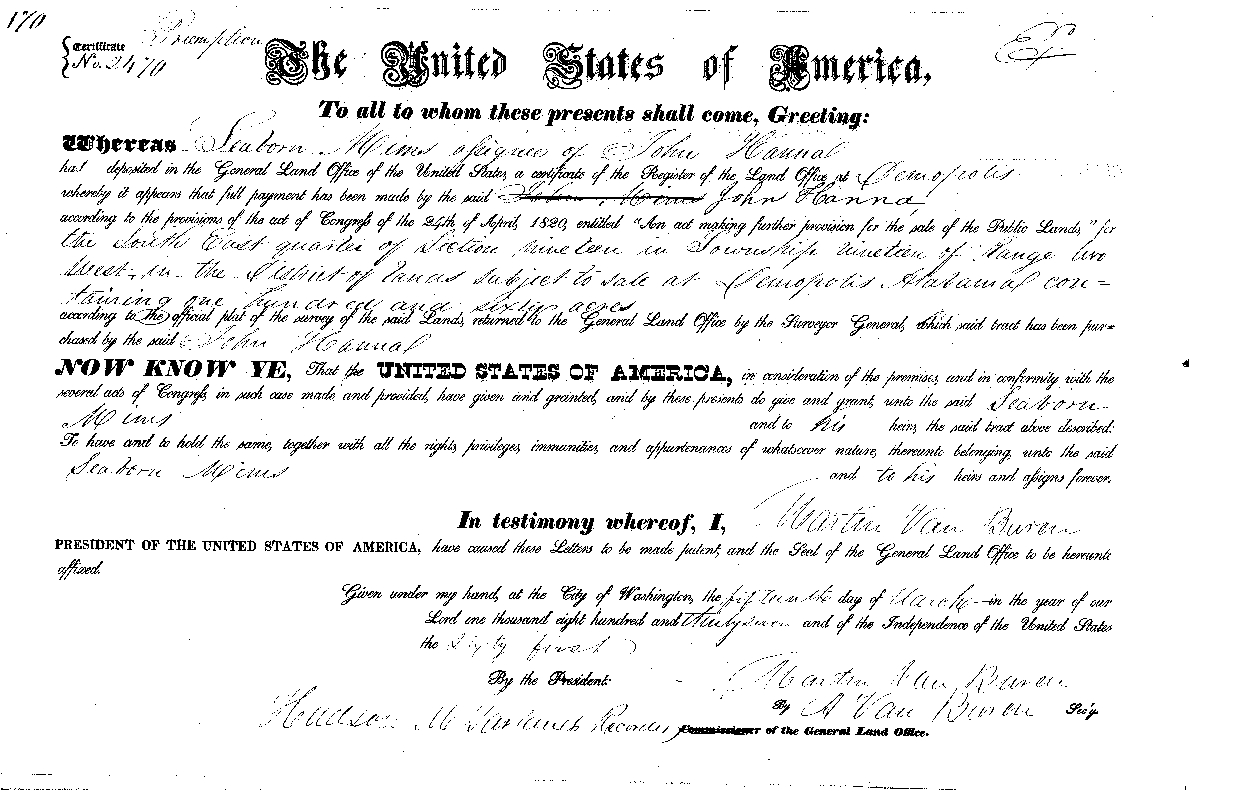 170
Preemption
Certificate
No. 2470
Ex
The United States of America,
To all to whom these presents shall come, Greeting:
Whereas Seaborn Mims assignee of John Hannah
has deposited in the General Land Office of the United States, a certificate of the Register of the Land Office at Demopolis
whereby it appears that full payment has been made by the said John Hanna
according to the provisions of the act of Congress of the 24th of April, 1820, entitled "An act making further provision for the sale of the Public Lands," for
the South East quarter of Section nineteen in Township nineteen of Range two
West, in the District of lands subject to sale at Demopolis Alabama con=
taining one hundred and sixty acres
according to the official plat of the survey of the said Lands, returned to the General Land Office by the Surveyor General, which said tract has been pur=
chased by the said John Hannah
NOW KNOW YE, That the UNITED STATES OF AMERICA, in consideration of the premises, and in conformity with the
several acts of Congress, in such case made and provided, have given and granted, and by these presents do give and grant, unto the said Seaborn
Mims and to his heirs, the said tract above described:
To have and to hold the same, together with all the rights, privileges, immunities, and appurtenances of whatsoever nature, thereunto belonging, unto the said
Seaborn Mims and to his heirs and assigns forever.
In testimony whereof, I, Martin Van Buren
PRESIDENT OF THE UNITED STATES OF AMERICA, have caused these Letters to be made patent, and the Seal of the General Land Office to be hereunto
affixed.
Given under my hand, at the City of Washington, the fifteenth day of March in the year of our
Lord one thousand eight hundred and thirty seven and of the Independence of the United States
the sixty first
By the President: Martin Van Buren
By A Van Buren Sec'y.
Hudson M Garland Recorder Commissioner of the General Land Office.